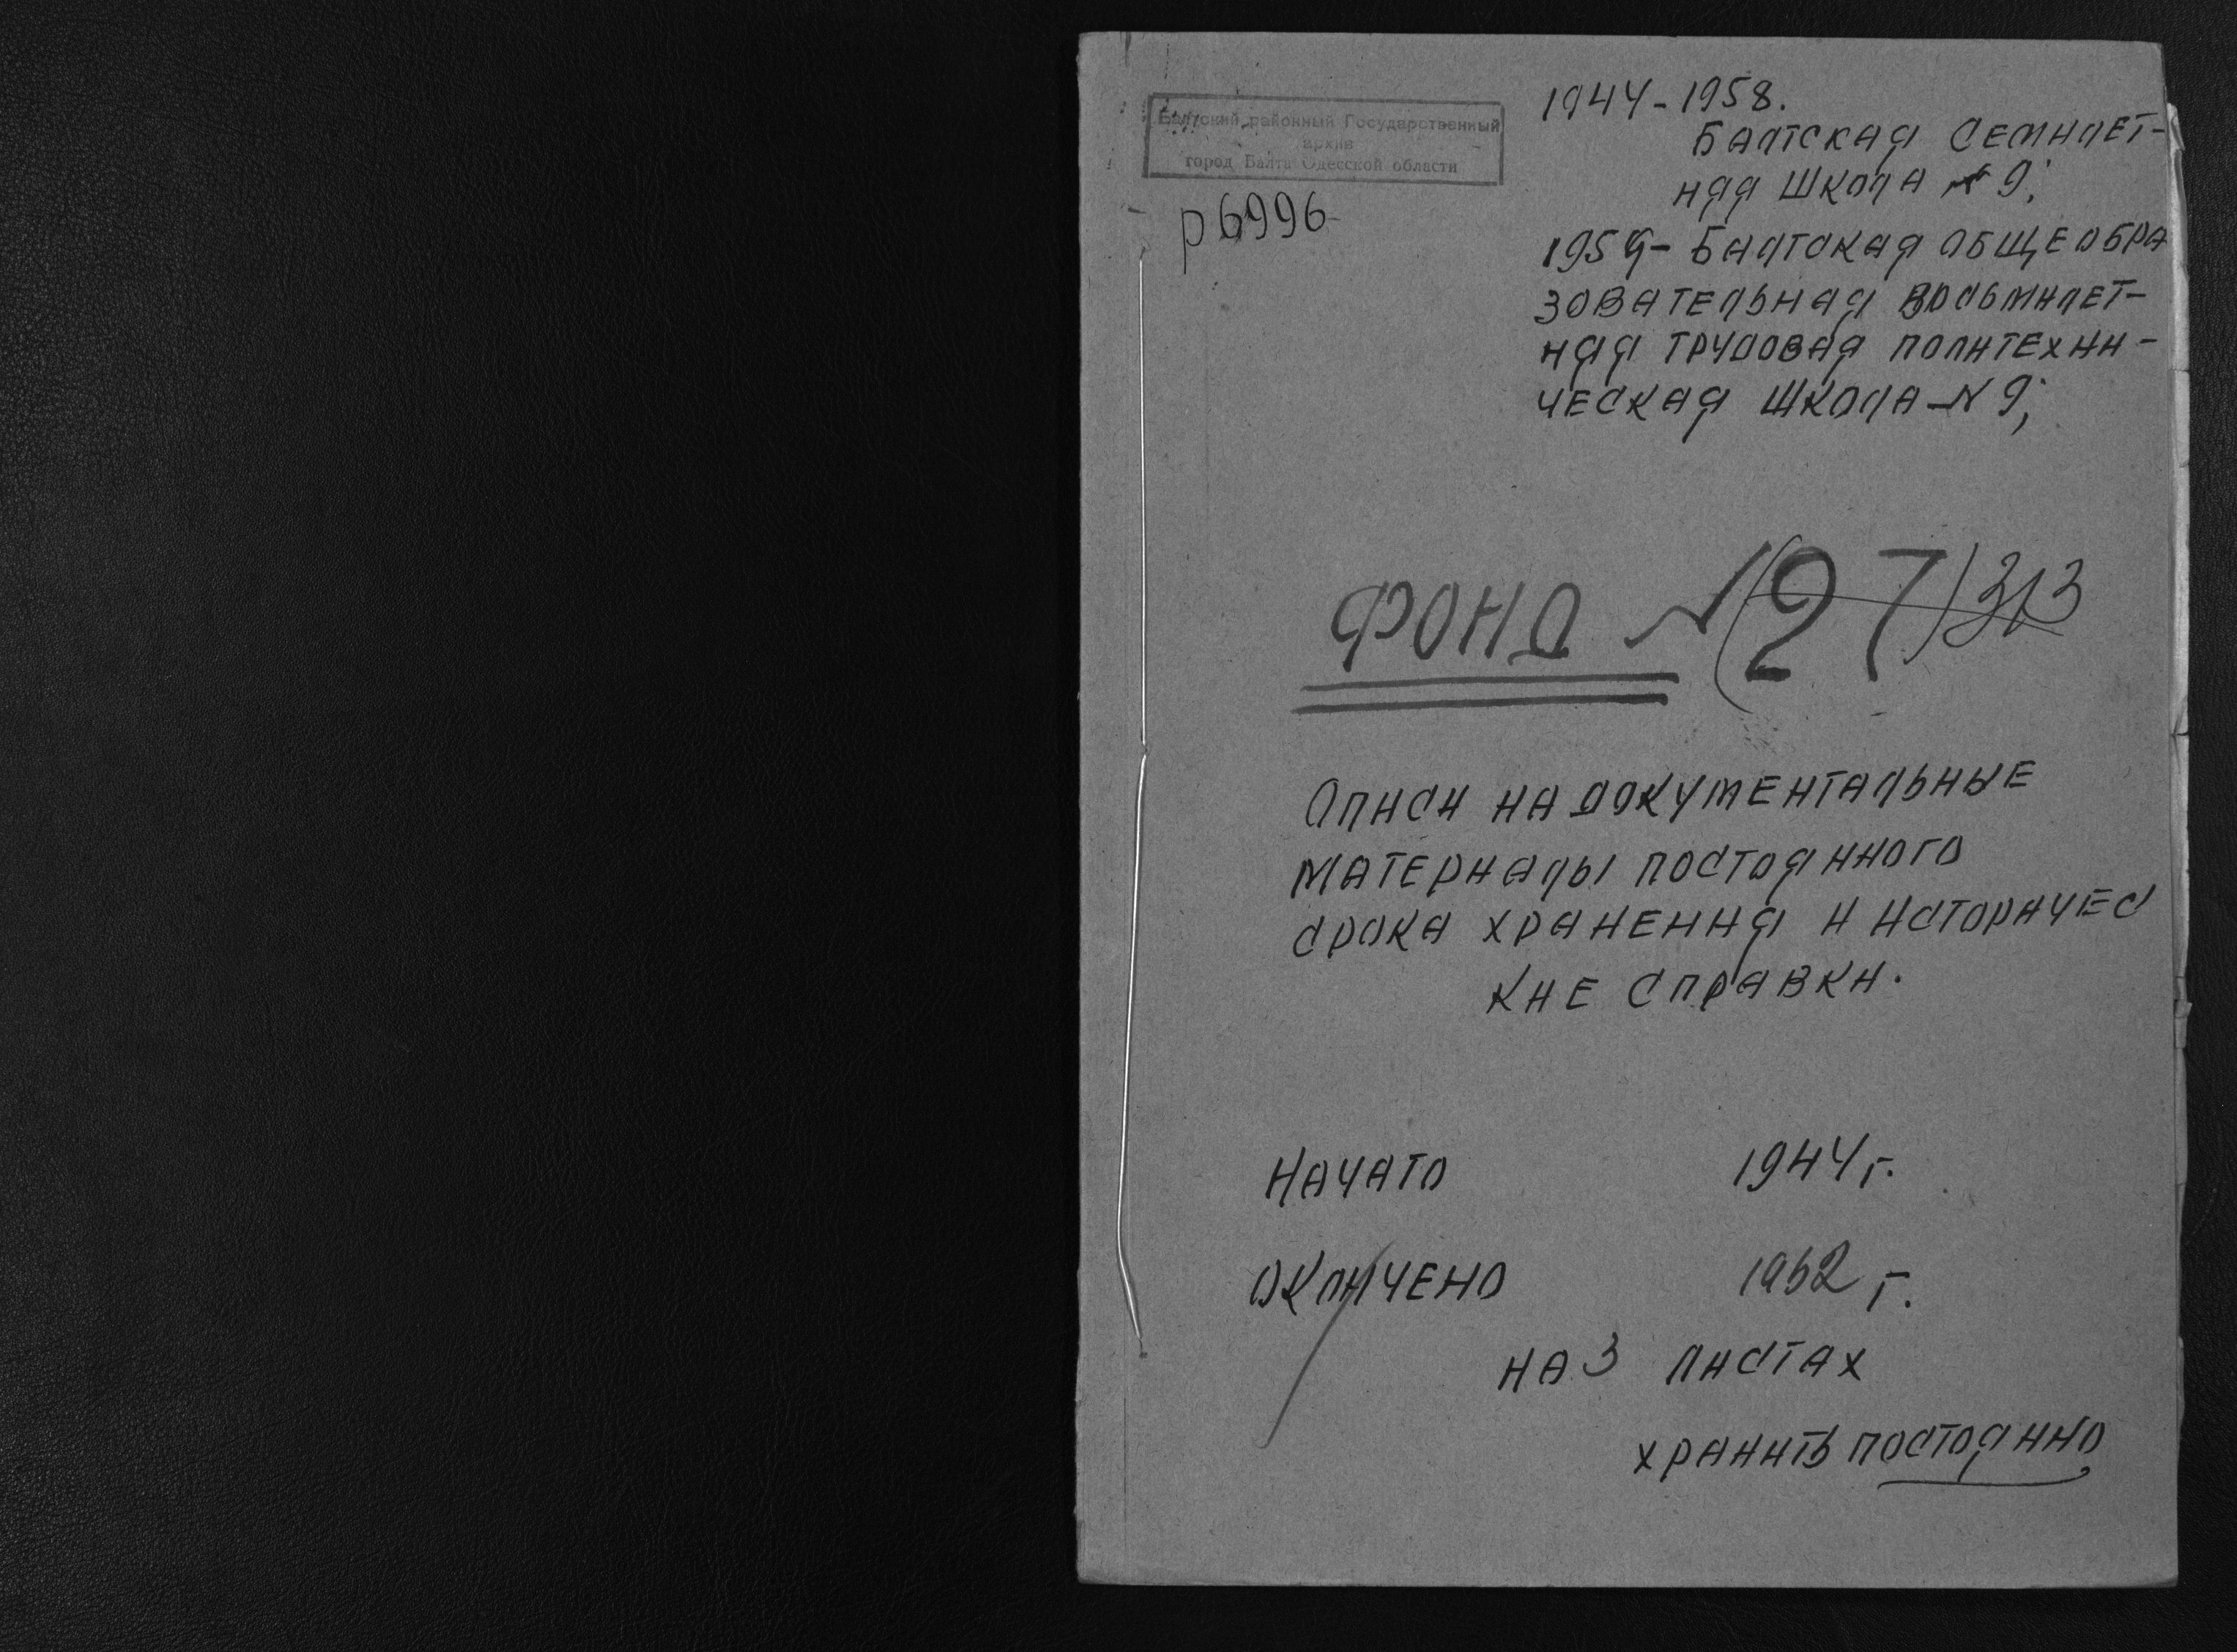 Балтский районный Государственный
архив
город Балта Одесской области
р6996
1944-1958.
Балтская семилет-
няя школа № 9;
1959- Балтская общеобра
зовательная восьмилет-
няя трудовая политехни-
ческая школа № 9;
Фонд № (27) 313
Описи на документальные
материалы постоянного
срока хранения и историчес
кие справки.
Начато 1944 г.
Окончено 1962 г.
на 3 листах
хранить постоянно